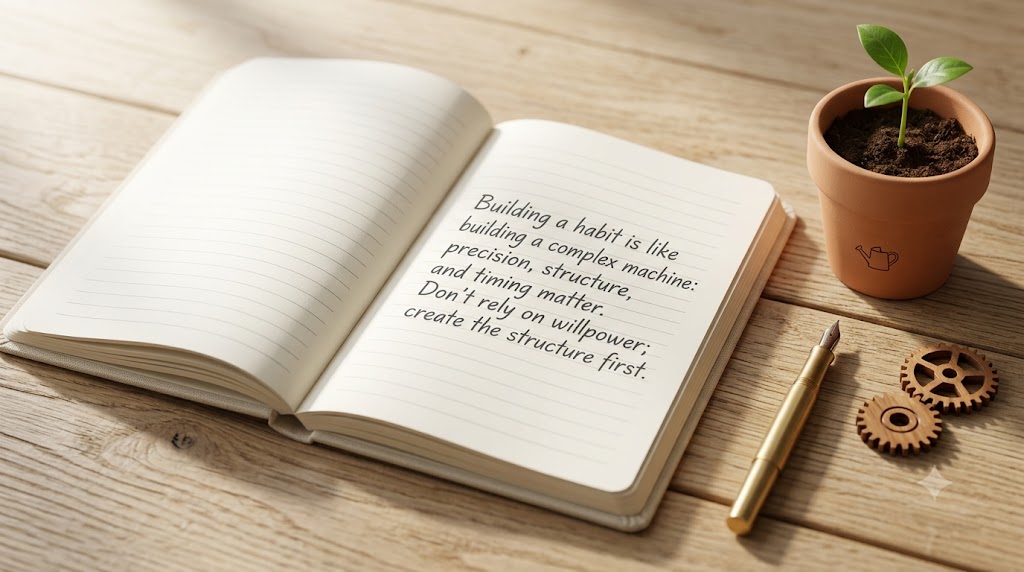 Building a habit is like
building a complex machine:
precision, structure,
and timing matter.
Don't rely on willpower;
create the structure first.